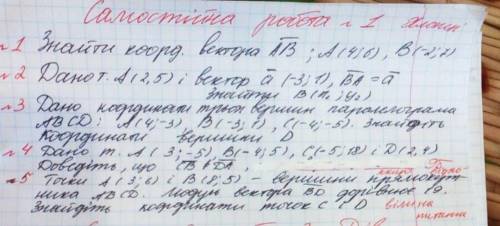 Самостійна робота №1
№1 Знайти коорд. вектора AB; A(4;6), B(-2;7)
№2 Дано т. A(2,5) і вектор a(-3;7), BA=a
Знайти B(x₁;y₂)
№3 Дано координати трьох вершин паралелограма
ABCD: A(4;-3) B(-3;1), C(-4;-5). Знайдіть
Координати вершини D
№4 Дано т. A(3;-5) B(-4;5), C(-5;18) і D(2,4)
Доведіть, що
№5 Точки A(3;6) і B(8;5) – вершини прямокут-
ника ABCD. Модуль вектора BD дорівнює 19.
Знайдіть координати точок C і D